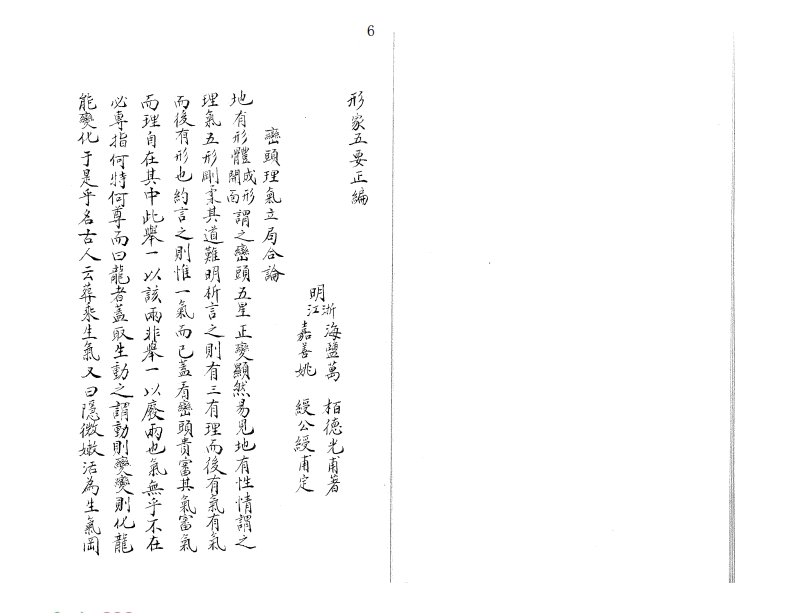 6
形家五要正編
明浙江海鹽萬　栢德光甫著
嘉善姚　綬公綬甫定
巒頭理氣立局合論
地有形體成形開面謂之巒頭五星正變顯然易見地有性情謂之
理氣五形剛柔其道難明析言之則有三有理而後有氣有氣
而後有形也約言之則惟一氣而已蓋看巒頭貴富其氣富氣
而理自在其中此舉一以該兩非舉一以廢兩也氣無乎不在
必專指何特何尊而曰龍者蓋取生動之謂動則變變則化龍
能變化于是乎名古人云葬乘生氣又曰隱微嫩活為生氣岡